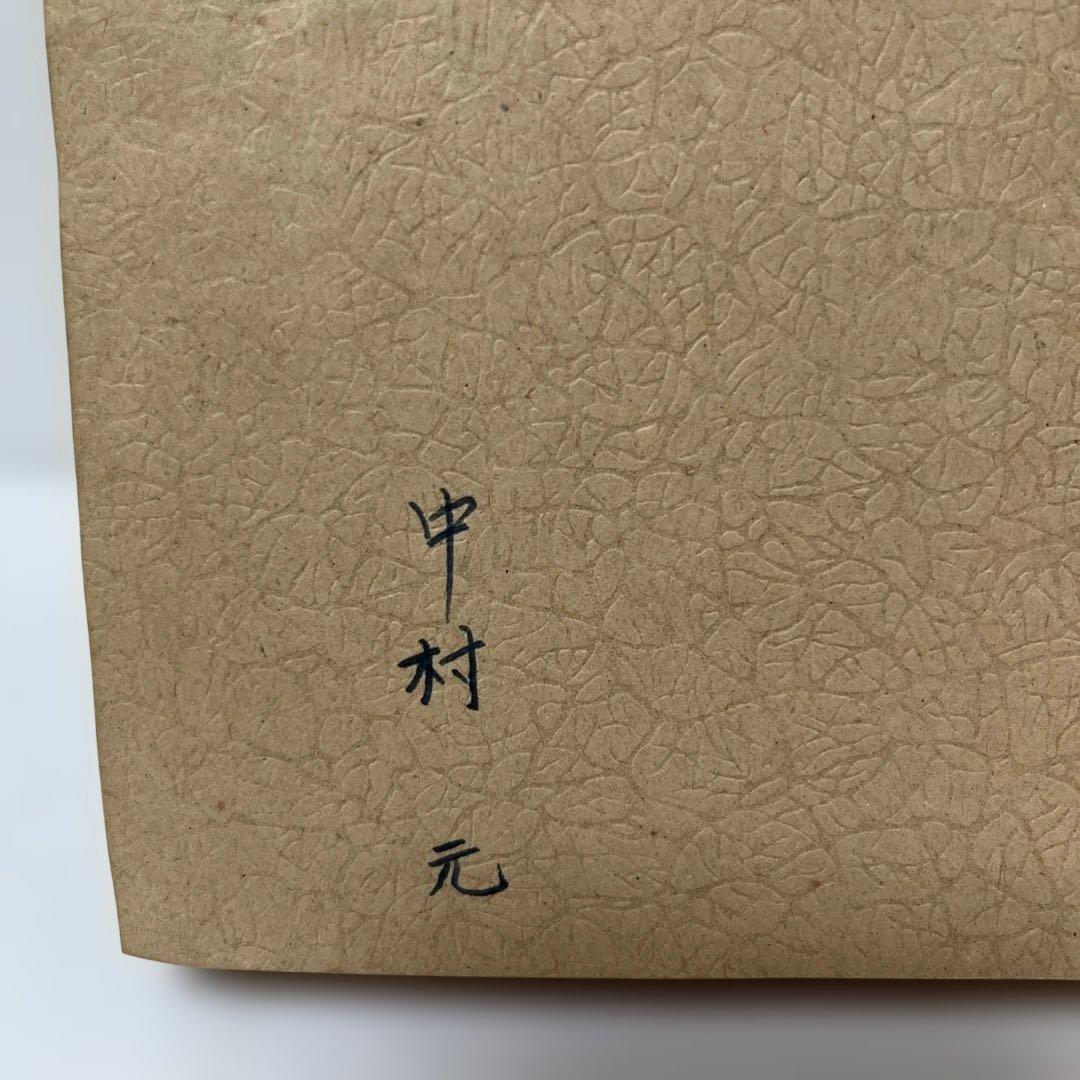 中村 元